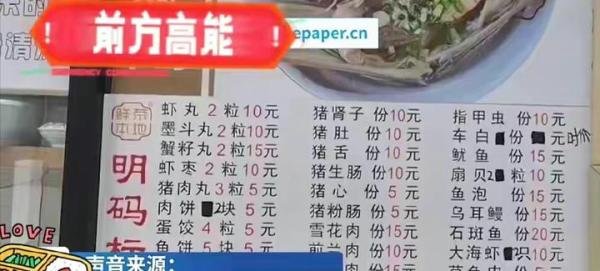 前方高能
epaper.cn
鲜京
本地
明码标
虾丸 2粒10元
墨斗丸 2粒10元
蟹籽丸 2粒15元
虾枣 2粒10元
猪肉丸 3粒 5元
肉饼 2块 5元
蛋饺 4粒 5元
鱼饼 5块 5元
猪肾子 份10元
猪肚 份10元
猪舌 份10元
猪生肠 份10元
猪心 份 5元
猪粉肠 份 5元
雪花肉 份10元
前兰肉 份10元
指甲虫 份10元
车白 份 元 时价
鱿鱼 份15元
扇贝 粒10元
鱼泡 份15元
乌耳鳗 份15元
石斑鱼 份20元
大海虾 只10元
声音来源：
LOVE